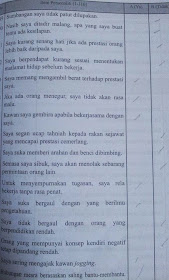 Sumbangan saya tidak patut dilupakan.
Nasib saya ditedir malang, apa yang saya buat
ada kesilapan.
Saya kurang senang hati jika ada prestasi orang
lebih baik daripada saya.
Saya berpendapat kurang sesuai menentukan
matlamat hidup sebelum bekerja.
Saya memang mengambil berat terhadap prestasi
saya.
Jika ada orang menegur, saya tidak akan rasa
malu.
Kawan saya gembira apabila bekerjasama dengan
saya.
Saya segan ucap tahniah kepada rakan sejawat
yang mencapai prestasi cemerlang.
Saya suka memberi arahan dan benci dibimbing.
Semasa saya sibuk, saya akan menolak sebarang
permintaan orang lain.
Untuk menyempurnakan tugasan, saya rela
bekerja tanpa rasa penat.
Saya suka bergaul dengan yang berilmu
pengetahuan.
Saya tidak bergaul dengan orang yang
berpendidikan rendah.
Orang yang mempunyai konsep kendiri negatif
dipandang rendah.
Saya sering mengajak kawan jogging.
masa merasakan saling bantu-membantu